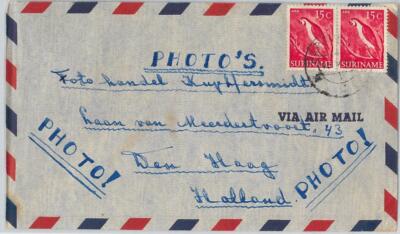 15c 15c
SURINAME SURINAME
PHOTO'S.
Foto handel Kuyhersmidt
Laan van Meerdertvoort, 43
VIA AIR MAIL
Den Haag
Holland
PHOTO!
PHOTO!